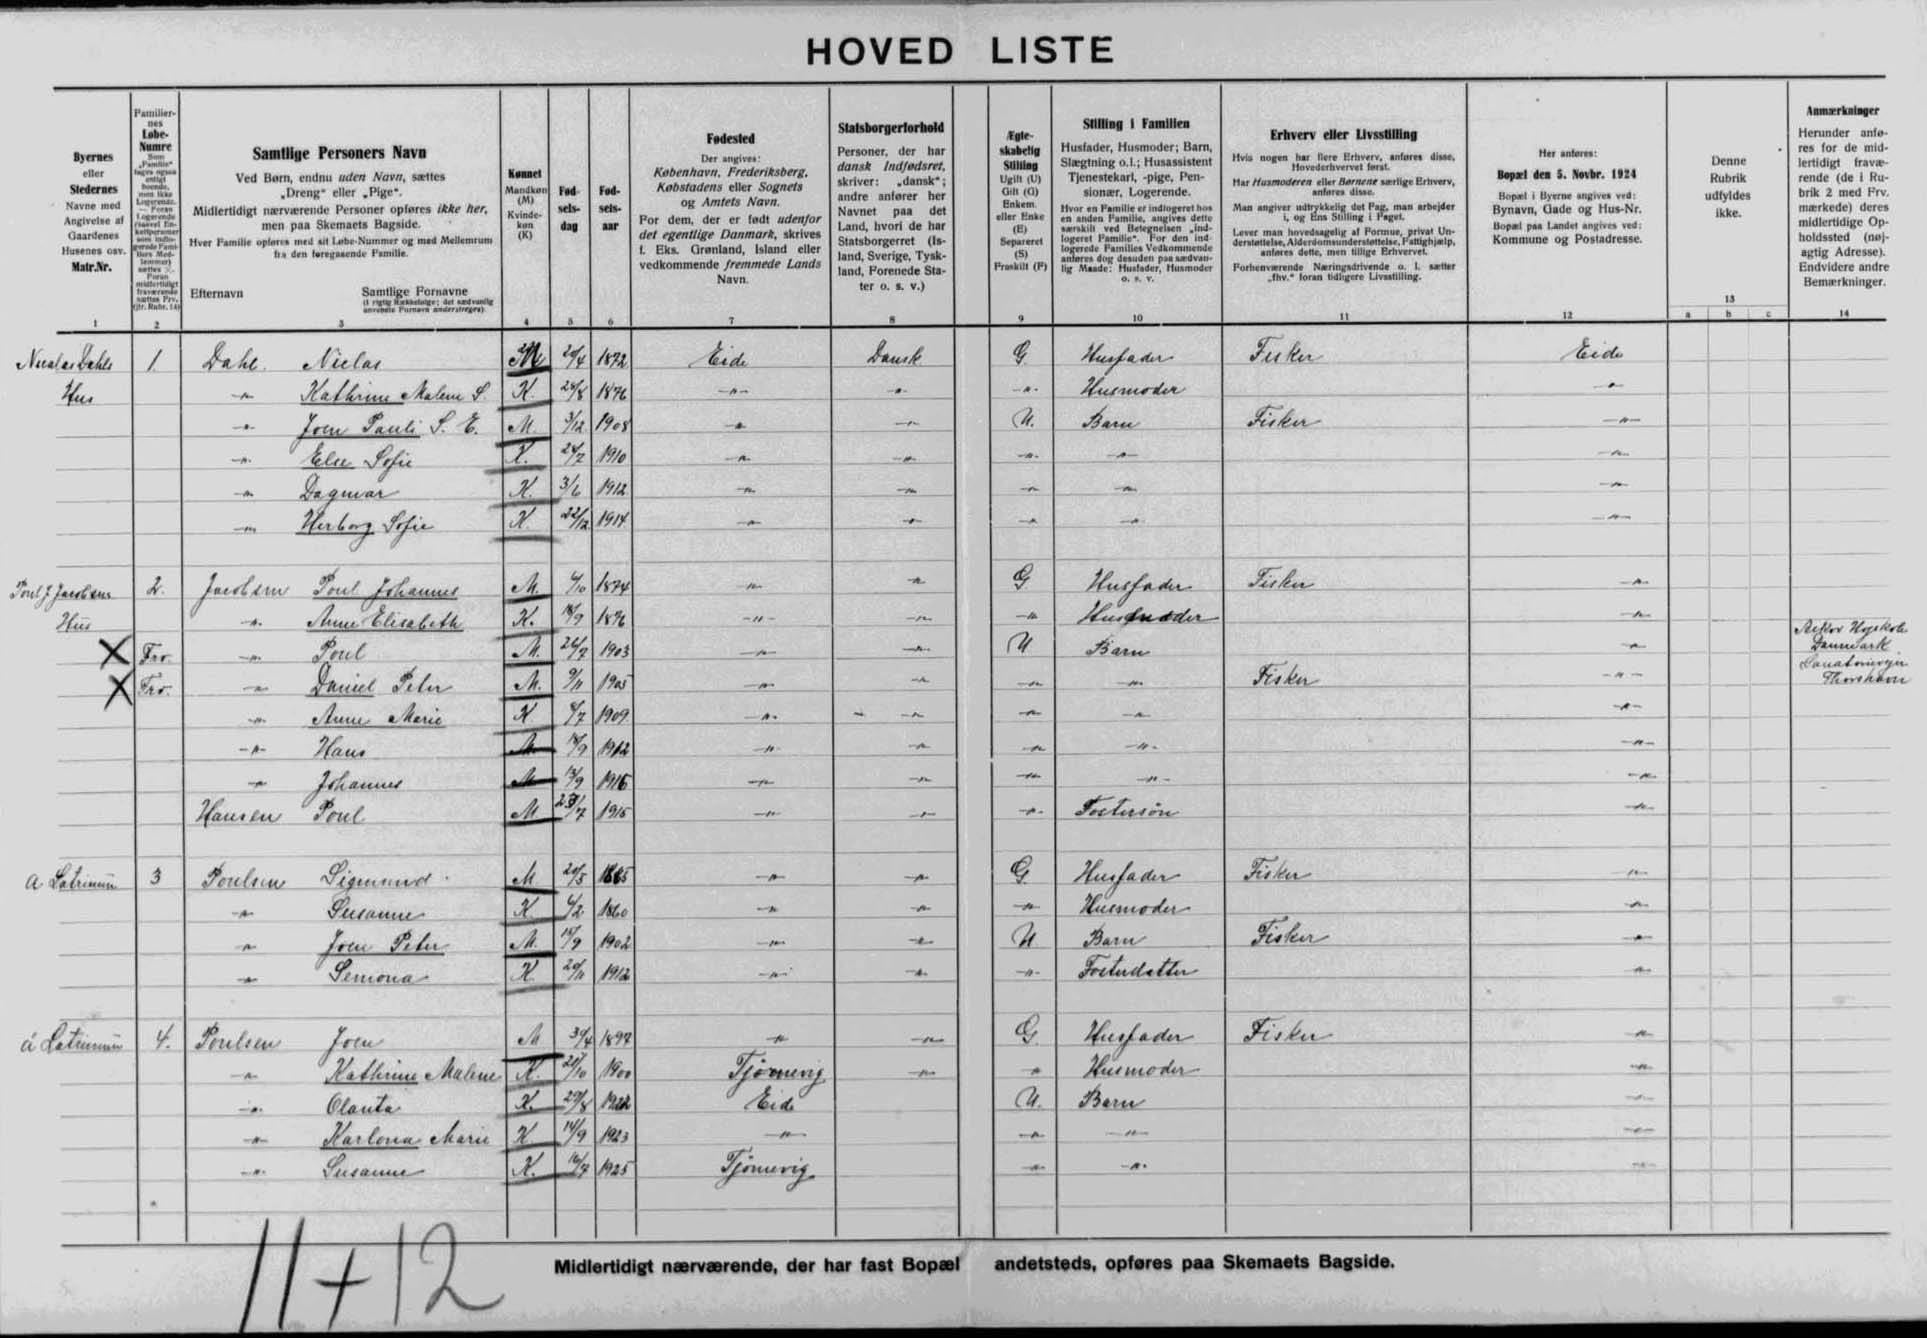 HOVED LISTE
Byernes
eller
Stedernes
Navne med
Angivelse af
Gaardenes
Husenes osv.
Matr.Nr.
1
Familier-
nes
Løbe-
Numre
2
Samtlige Personers Navn
Ved Børn, endnu uden Navn, sættes
„Dreng" eller „Pige".
Midlertidigt nærværende Personer opføres ikke her,
men paa Skemaets Bagside.
Hver Familie opføres med sit Løbe-Nummer og med Mellemrum
fra den foregaaende Familie.
Efternavn Samtlige Fornavne
(i rigtig Rækkefølge; det sædvanlig
anvendte Fornavn understreges).
3
Kønnet
Mandkøn
(M)
Kvinde-
køn
(K)
4
Fød-
sels-
dag
5
Fød-
sels-
aar
6
Fødested
Der angives:
København, Frederiksberg,
Købstadens eller Sognets
og Amtets Navn.
For dem, der er født udenfor
det egentlige Danmark, skrives
f. Eks. Grønland, Island eller
vedkommende fremmede Lands
Navn.
7
Statsborgerforhold
Personer, der har
dansk Indfødsret,
skriver: „dansk";
andre anfører her
Navnet paa det
Land, hvori de har
Statsborgerret (Is-
land, Sverige, Tysk-
land, Forenede Sta-
ter o. s. v.)
8
Ægte-
skabelig
Stilling
Ugift (U)
Gift (G)
Enkem.
eller Enke
(E)
Separeret
(S)
Fraskilt (F)
9
Stilling i Familien
Husfader, Husmoder; Barn,
Slægtning o.l.; Husassistent
Tjenestekarl, -pige, Pen-
sionær, Logerende.
Hvor en Familie er indlogeret hos
en anden Familie, angives dette
særskilt ved Betegnelsen „ind-
logeret Familie". For den ind-
logerede Families Vedkommende
anføres dog desuden paa sædvan-
lig Maade: Husfader, Husmoder
o. s. v.
10
Erhverv eller Livsstilling
Hvis nogen har flere Erhverv, anføres disse,
Hovederhvervet først.
Har Husmoderen eller Børnene særlige Erhverv,
anføres disse.
Man angiver udtrykkelig det Fag, man arbejder
i, og Ens Stilling i Faget.
Lever man hovedsagelig af Formue, privat Un-
derstøttelse, Alderdomsunderstøttelse, Fattighjælp,
anføres dette, men tillige Erhvervet.
Forhenværende Næringsdrivende o. l. sætter
„fhv." foran tidligere Livsstilling.
11
Her anføres:
Bopæl den 5. Novbr. 1924
Bopæl i Byerne angives ved:
Bynavn, Gade og Hus-Nr.
Bopæl paa Landet angives ved:
Kommune og Postadresse.
12
Denne
Rubrik
udfyldes
ikke.
13
a b c
Anmærkninger
Herunder anfø-
res for de mid-
lertidigt fravæ-
rende (de i Ru-
brik 2 med Frv.
mærkede) deres
midlertidige Op-
holdssted (nøj-
agtig Adresse).
Endvidere andre
Bemærkninger.
14
Nicolas Dahls 1. Dahl. Niclas M 20/4 1872 Eide Dansk G. Husfader Fisker Eide
Hus -"- Kathrine Malene S. K. 28/8 1876 -"- -"- -"- Husmoder -"-
-"- Joen Pauli S. E. M. 3/12 1908 -"- -"- U. Barn Fisker -"-
-"- Else Sofie K. 24/7 1910 -"- -"- -"- -"- -"-
-"- Dagmar K. 3/6 1912 -"- -"- -"- -"- -"-
-"- Herborg Sofie K. 22/12 1914 -"- -"- -"- -"- -"-
Poul J. Jacobsens 2. Jacobsen Poul Johannes M. 1874 -"- -"- G Husfader Fisker -"-
Hus -"- Anne Elisabeth K. 18/9 1876 -"- -"- -"- Husmoder -"-
X Frv. -"- Poul M. 26/7 1903 -"- -"- U Barn -"- Askov Højskole Danmark
X Frv. -"- Daniel Peter M. 9/11 1905 -"- -"- -"- -"- Fisker -"- Thorshavn
-"- Anne Marie K 1909 -"- -"- -"- -"- -"-
-"- Hans M. 18/9 1912 -"- -"- -"- -"- -"-
-"- Johannes M 13/9 1916 -"- -"- -"- -"- -"-
Hansen Poul M 1915 -"- -"- -"- Fostersøn -"-
a Látrinum 3 Poulsen Sigmund M 20/5 1865 -"- -"- G. Husfader Fisker -"-
-"- Susanne K. 1860 -"- -"- -"- Husmoder -"-
-"- Joen Peter M. 15/9 1902 -"- -"- U. Barn Fisker -"-
-"- Semona K. 20/11 1912 -"- -"- -"- Fosterdatter -"-
á Látrinum 4. Poulsen Joen M 30/4 1897 -"- -"- G. Husfader Fisker -"-
-"- Kathrine Malene K. 1900 Tjørnevig -"- -"- Husmoder -"-
-"- Olanta K. 29/8 1922 Eide U. Barn -"-
-"- Karlona Marie K 14/9 1923 -"- -"- -"- -"-
-"- Susanne K. 1925 Tjørnevig -"- -"- -"-
11 + 12
Midlertidigt nærværende, der har fast Bopæl andetsteds, opføres paa Skemaets Bagside.